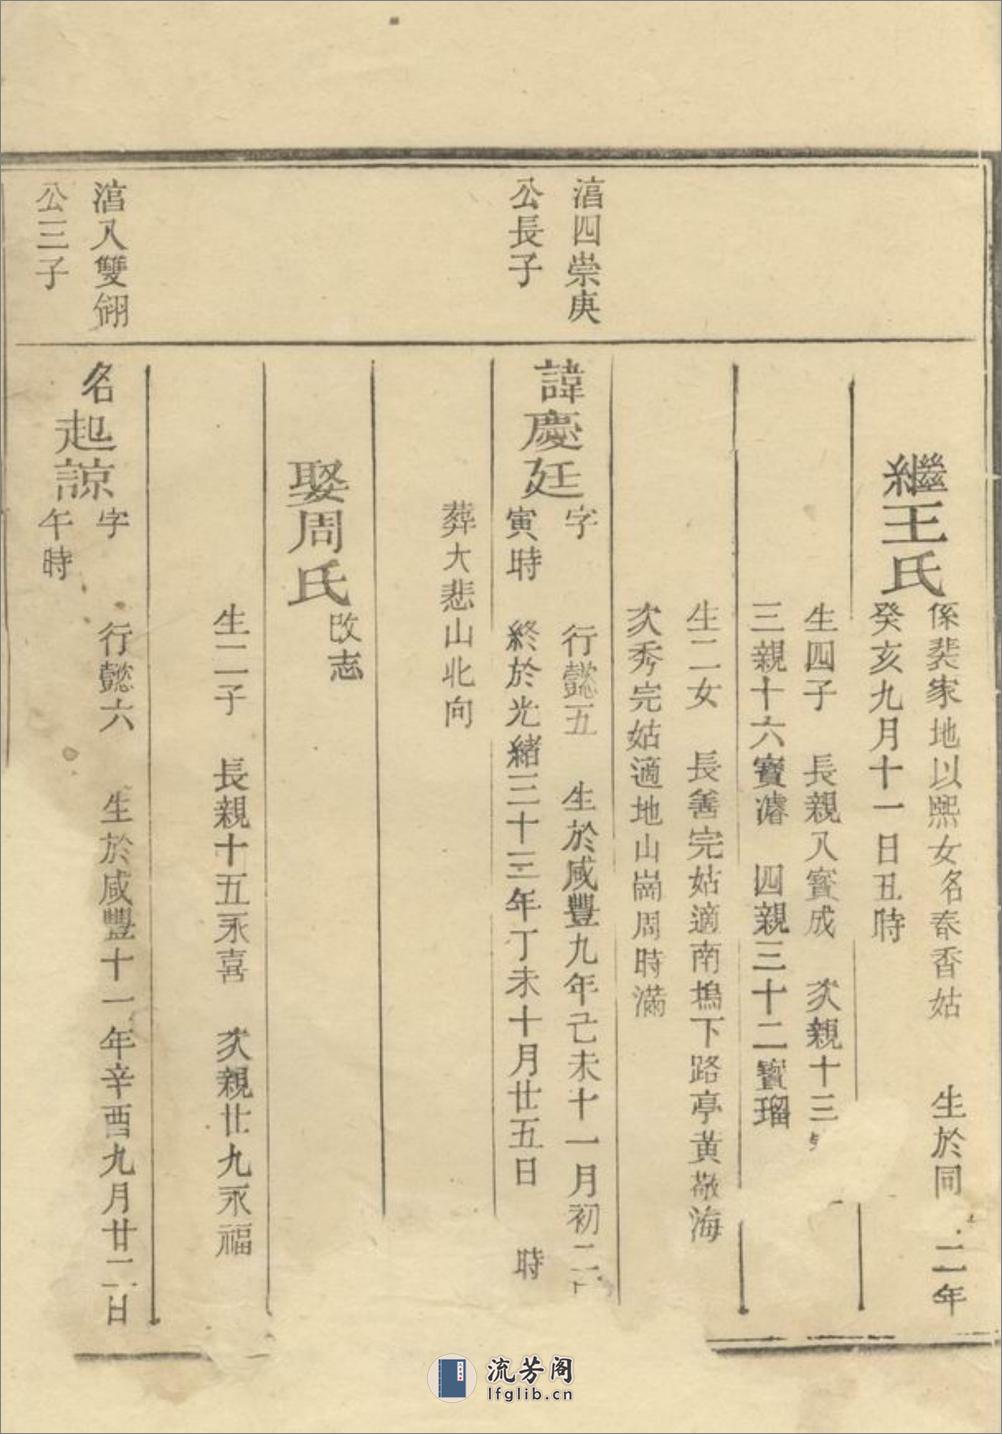 繼王氏
係裴家地以熙女名春香姑 生於同 二年
癸亥九月十一日丑時
生四子 長親八寶成 次親十三
三親十六寶濬 四親三十二寶瑠
生二女 長善完姑適南塢下路亭黃敬海
次秀完姑適地山崗周時滿
湻四崇庚
公長子
諱慶廷
字 行懿五 生於咸豐九年己未十一月初二
寅時 終於光緒三十三年丁未十月廿五日 時
葬大悲山北向
娶周氏
改志
生二子 長親十五永喜 次親廿九永福
湻八雙翎
公三子
名起諒
字 行懿六 生於咸豐十一年辛酉九月廿二日
午時
流芳阁
lfglib.cn